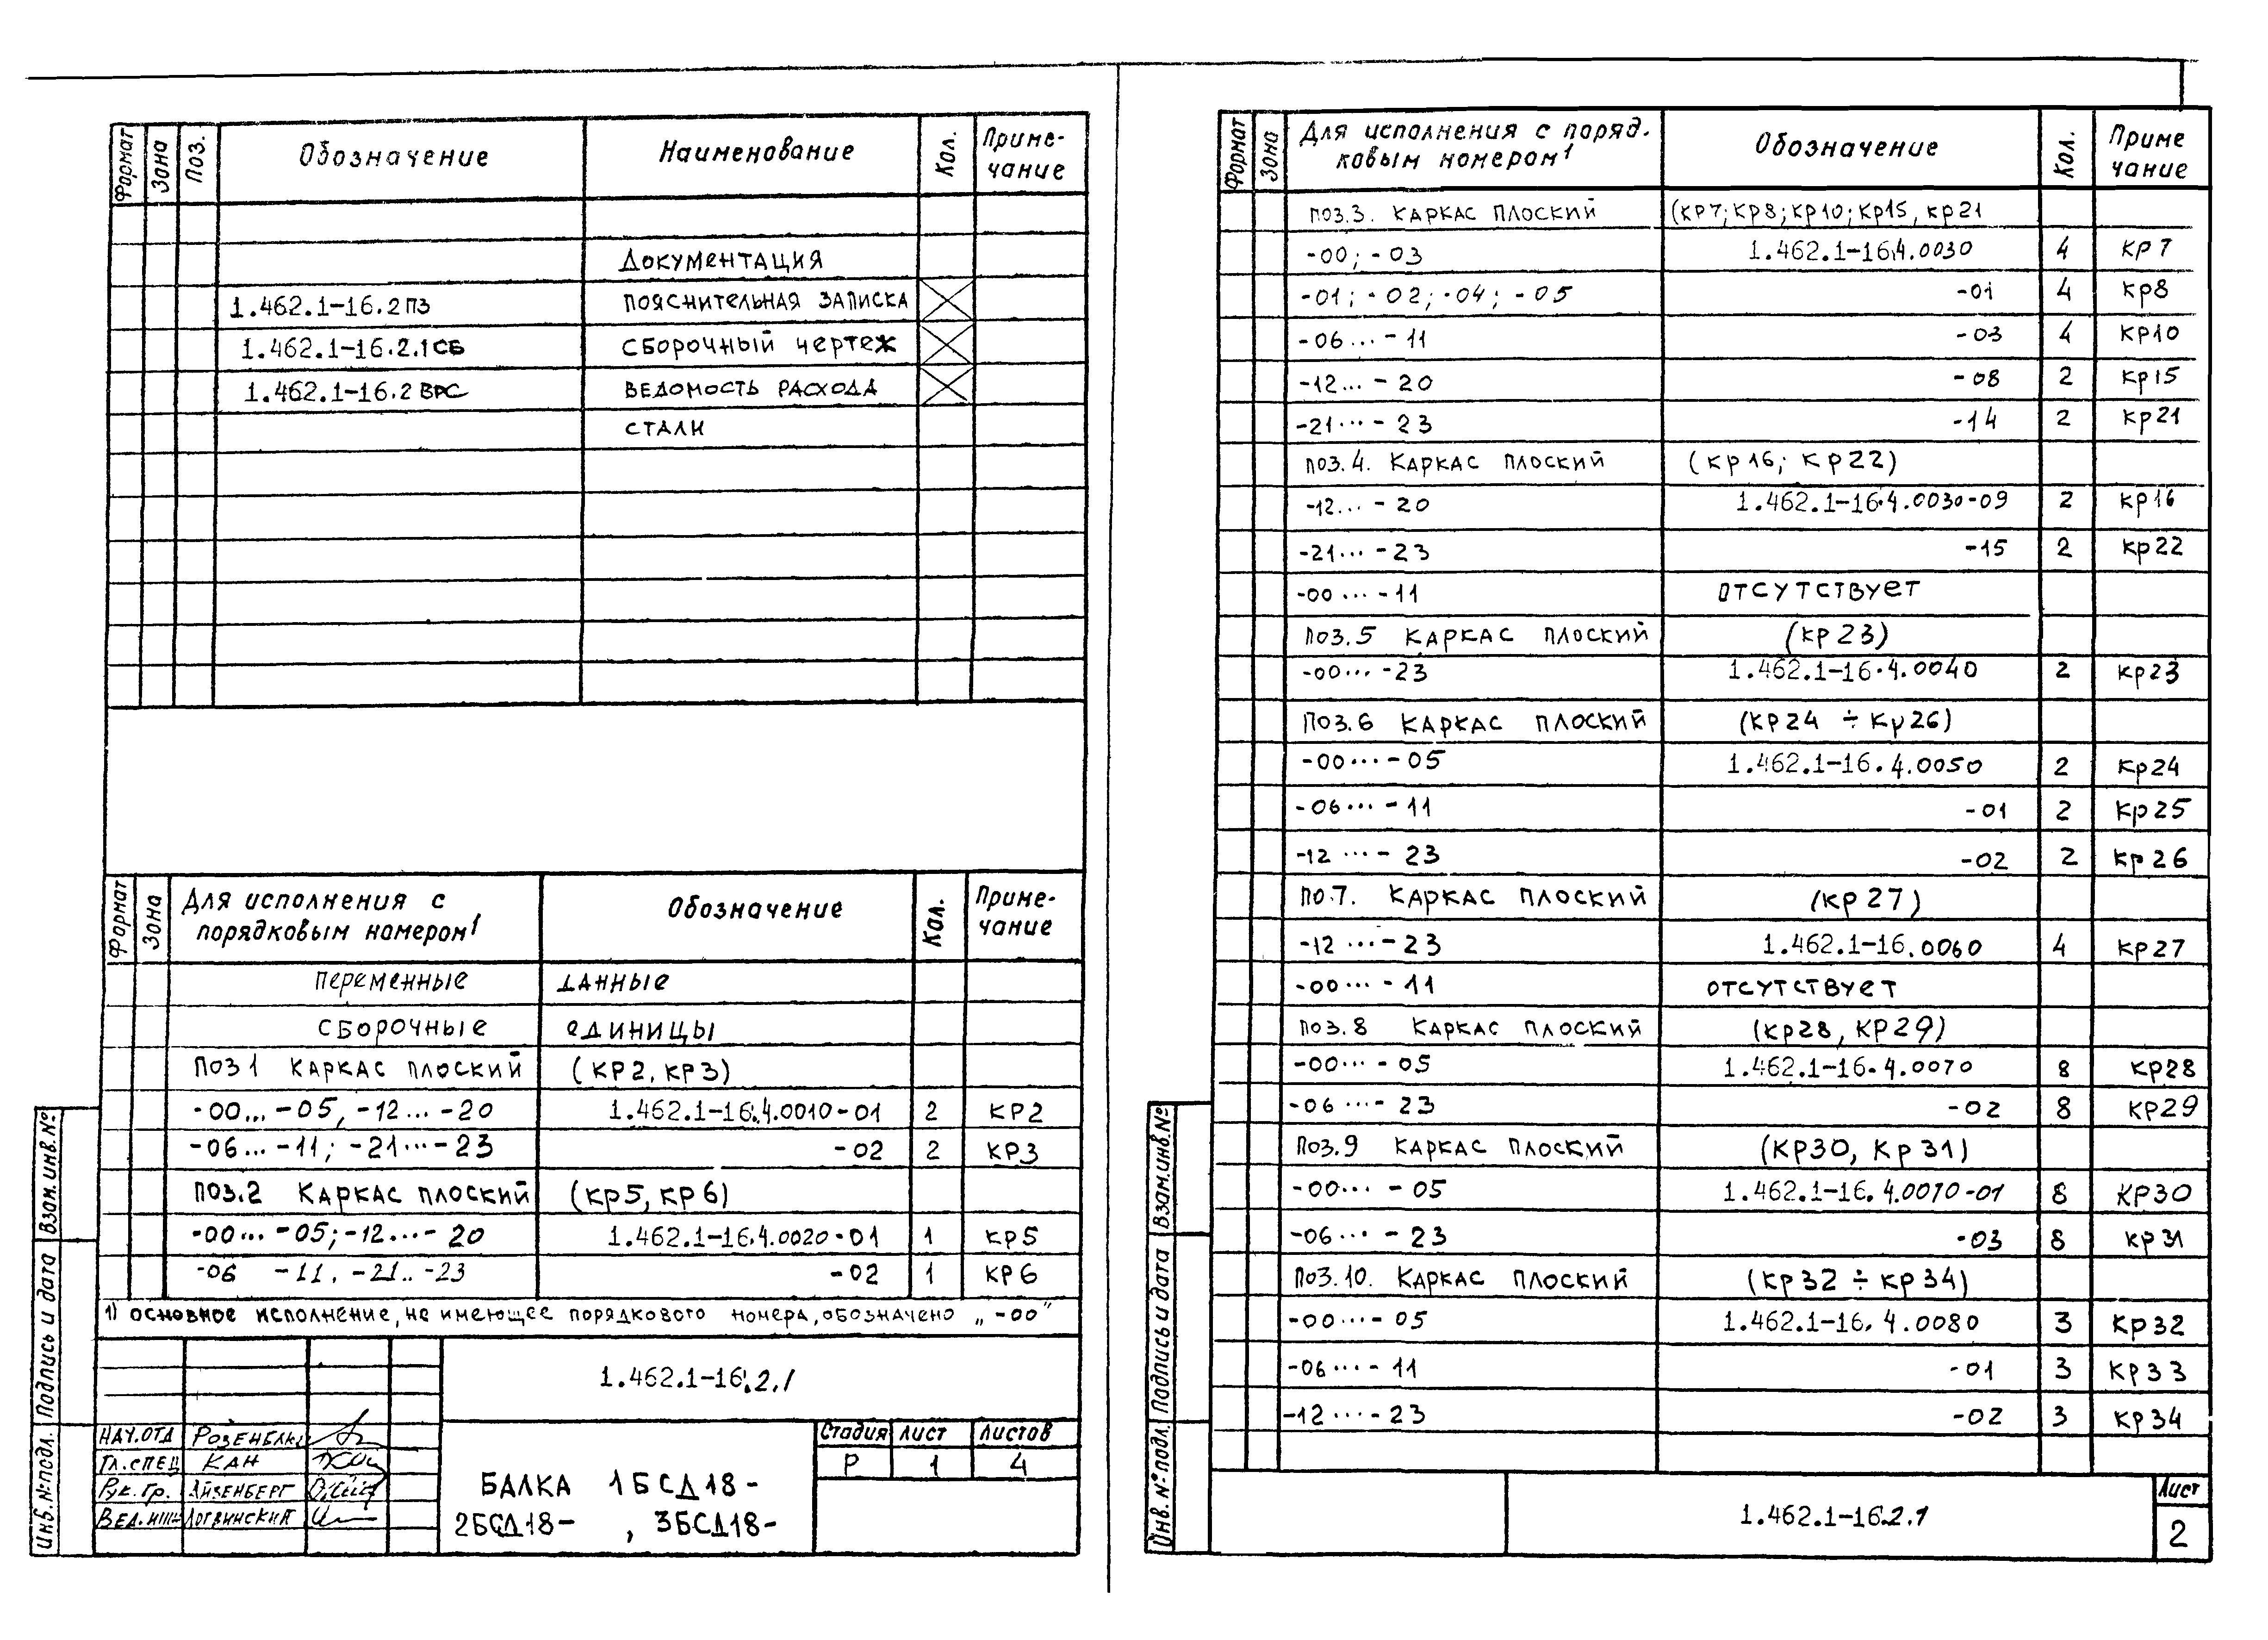 Формат Зона Поз. Обозначение Наименование Кол. Приме-
чание
Документация
1.462.1-16.2 ПЗ Пояснительная записка
1.462.1-16.2.1 СБ Сборочный чертеж
1.462.1-16.2 ВРС Ведомость расхода
стали
Формат Зона Для исполнения с Обозначение Кол. Приме-
порядковым номером1 чание
Переменные данные
Сборочные единицы
Поз 1 Каркас плоский (КР2, КР3)
-00... -05, -12... -20 1.462.1-16.4.0010-01 2 КР2
-06... -11; -21... -23 -02 2 КР3
Поз.2 Каркас плоский (Кр5, Кр6)
-00... -05; -12... -20 1.462.1-16.4.0020-01 1 Кр5
-06 -11. -21.. -23 -02 1 КР6
1) Основное исполнение, не имеющее порядкового номера, обозначено „-00"
1.462.1-16.2.1
Нач.отд
Гл.спец Кан
Рук.гр. Айзенберг
Вед.инж Логвинский
Балка 1БСД18-
2БСД18- , 3БСД18-
Стадия Лист Листов
Р 1 4
Инв.№подл. Подпись и дата Взам.инв.№
Формат Зона Для исполнения с поряд. Обозначение Кол. Приме
ковым номером1 чание
Поз.3. Каркас плоский (КР7; Кр8; Кр10; Кр15, Кр21
-00; -03 1.462.1-16.4.0030 4 КР7
-01; -02; -04; -05 -01 4 Кр8
-06... -11 -03 4 Кр10
-12... -20 -08 2 Кр15
-21... -23 -14 2 Кр21
Поз.4. Каркас плоский (Кр16; Кр22)
-12... -20 1.462.1-16.4.0030-09 2 Кр16
-21... -23 -15 2 Кр22
-00... -11 отсутствует
Поз.5 Каркас плоский (Кр23)
-00... -23 1.462.1-16.4.0040 2 Кр23
Поз.6 Каркас плоский (КР24 ÷ Кр26)
-00... -05 1.462.1-16.4.0050 2 Кр24
-06... -11 -01 2 Кр25
-12 ... - 23 -02 2 Кр26
По.7. Каркас плоский (Кр27)
-12 ... -23 1.462.1-16.0060 4 КР27
-00... -11 отсутствует
Поз.8 Каркас плоский (Кр28, КР29)
-00... -05 1.462.1-16.4.0070 8 Кр28
-06 ... - 23 -02 8 КР29
Поз.9 Каркас плоский (КР30, Кр31)
-00... -05 1.462.1-16.4.0070-01 8 КР30
-06... -23 -03 8 Кр31
Поз.10. Каркас плоский (Кр32 ÷ Кр34)
-00... -05 1.462.1-16.4.0080 3 Кр32
-06... -11 -01 3 Кр33
-12 ... -23 -02 3 Кр34
Инв.№подл. Подпись и дата Взам.инв.№
1.462.1-16.2.1
Лист
2